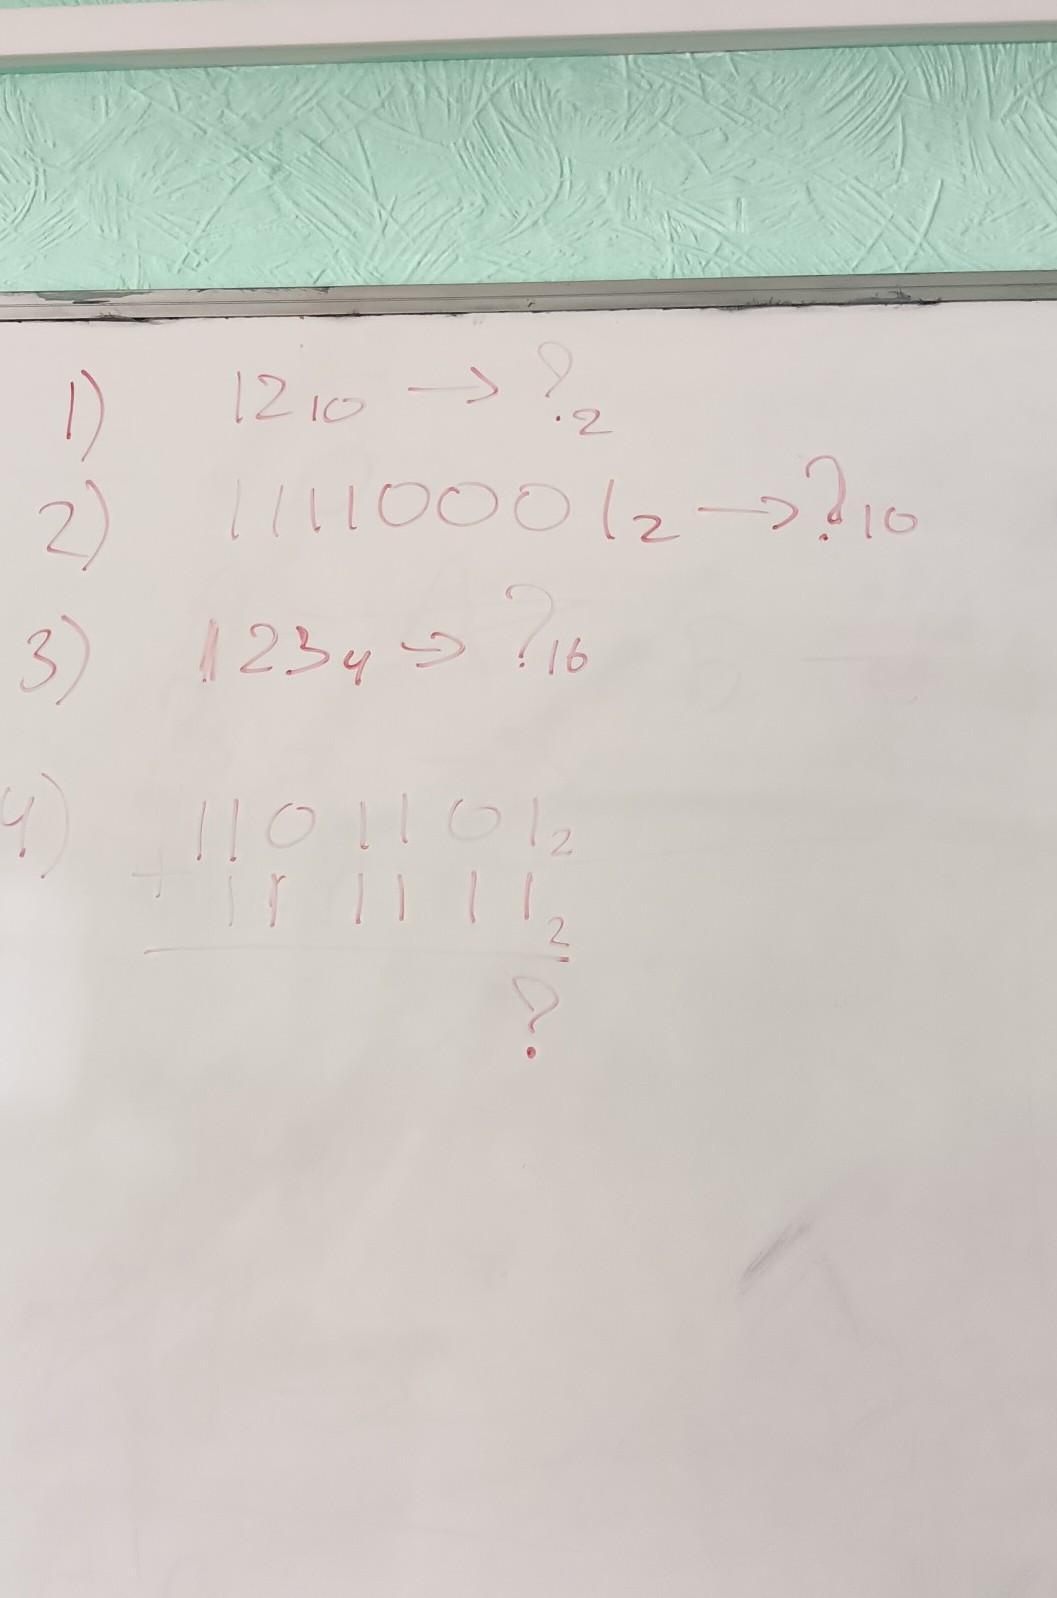 1) 12₁₀ → ?₂
2) 11110001₂ → ?₁₀
3) 123₄ → ?₁₆
4) 1101101₂
+ 111111₂
?